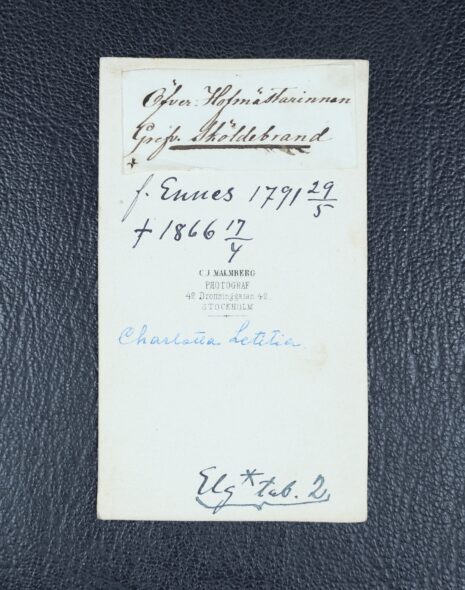 Öfver: Hofmästarinnan
Grefv. Sköldebrand
+
f. Ennes 1791 29/5
† 1866 17/4
C J MALMBERG
PHOTOGRAF
42 Drottninggatan 42
STOCKHOLM
Charlotta Letitia
Elg * tab. 2